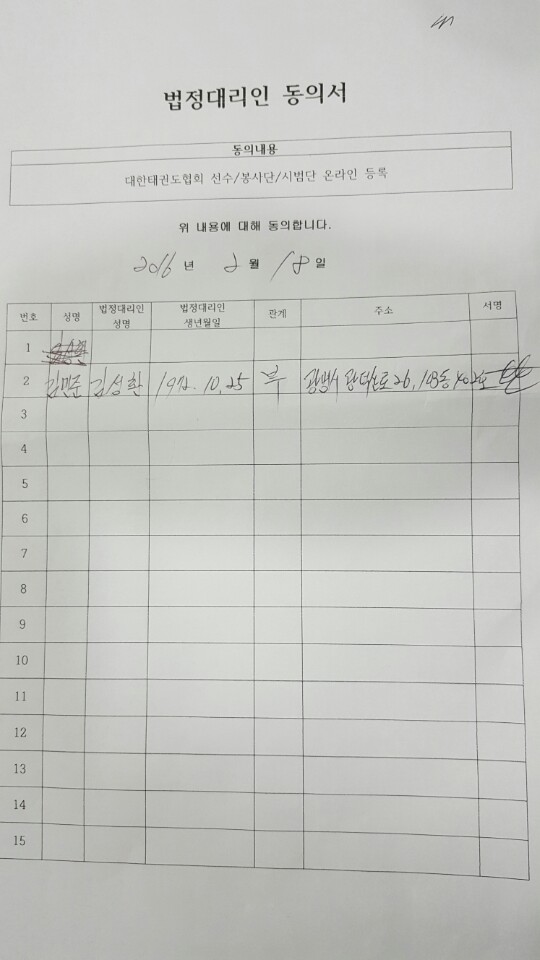 법정대리인 동의서
동의내용
대한태권도협회 선수/봉사단/시범단 온라인 등록
위 내용에 대해 동의합니다.
2016 년 2 월 18 일
번호 성명 법정대리인 성명 법정대리인 생년월일 관계 주소 서명
1
2 김민준 김성환 1972. 10. 25 부 광명시 26, 103동
3
4
5
6
7
8
9
10
11
12
13
14
15